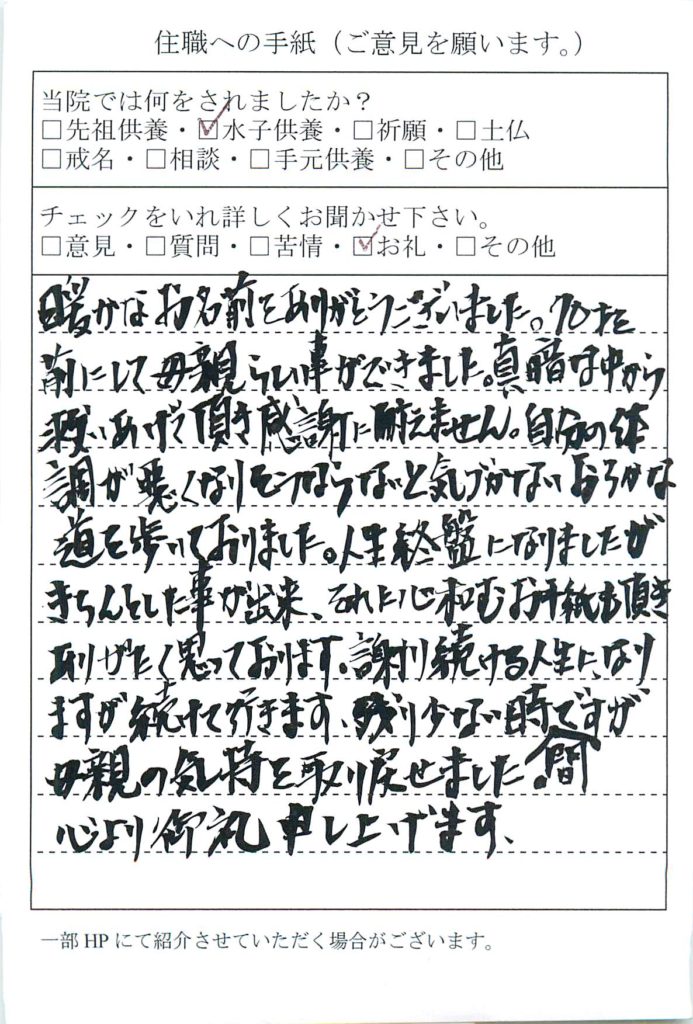 住職への手紙（ご意見を願います。）
当院では何をされましたか？
□先祖供養・☑水子供養・□祈願・□土仏
□戒名・□相談・□手元供養・□その他
チェックをいれ詳しくお聞かせ下さい。
□意見・□質問・□苦情・☑お礼・□その他
暖かなお名前をありがとうございました。70才を
前にして母親らしい事ができました。真暗な中から
救いあげて頂き感謝に耐えません。自分の体
調が悪くなりそうならないと気づかないおろかな
道を歩いておりました。人生終盤になりましたが
きちんとした事が出来、それに心和むお手紙も頂き
ありがたく思っております、謝り続ける人生になり
ますが続けて行きます、残り少ない時間ですが
母親の気持を取り戻せました。
心より御礼申し上げます、
一部HPにて紹介させていただく場合がございます。